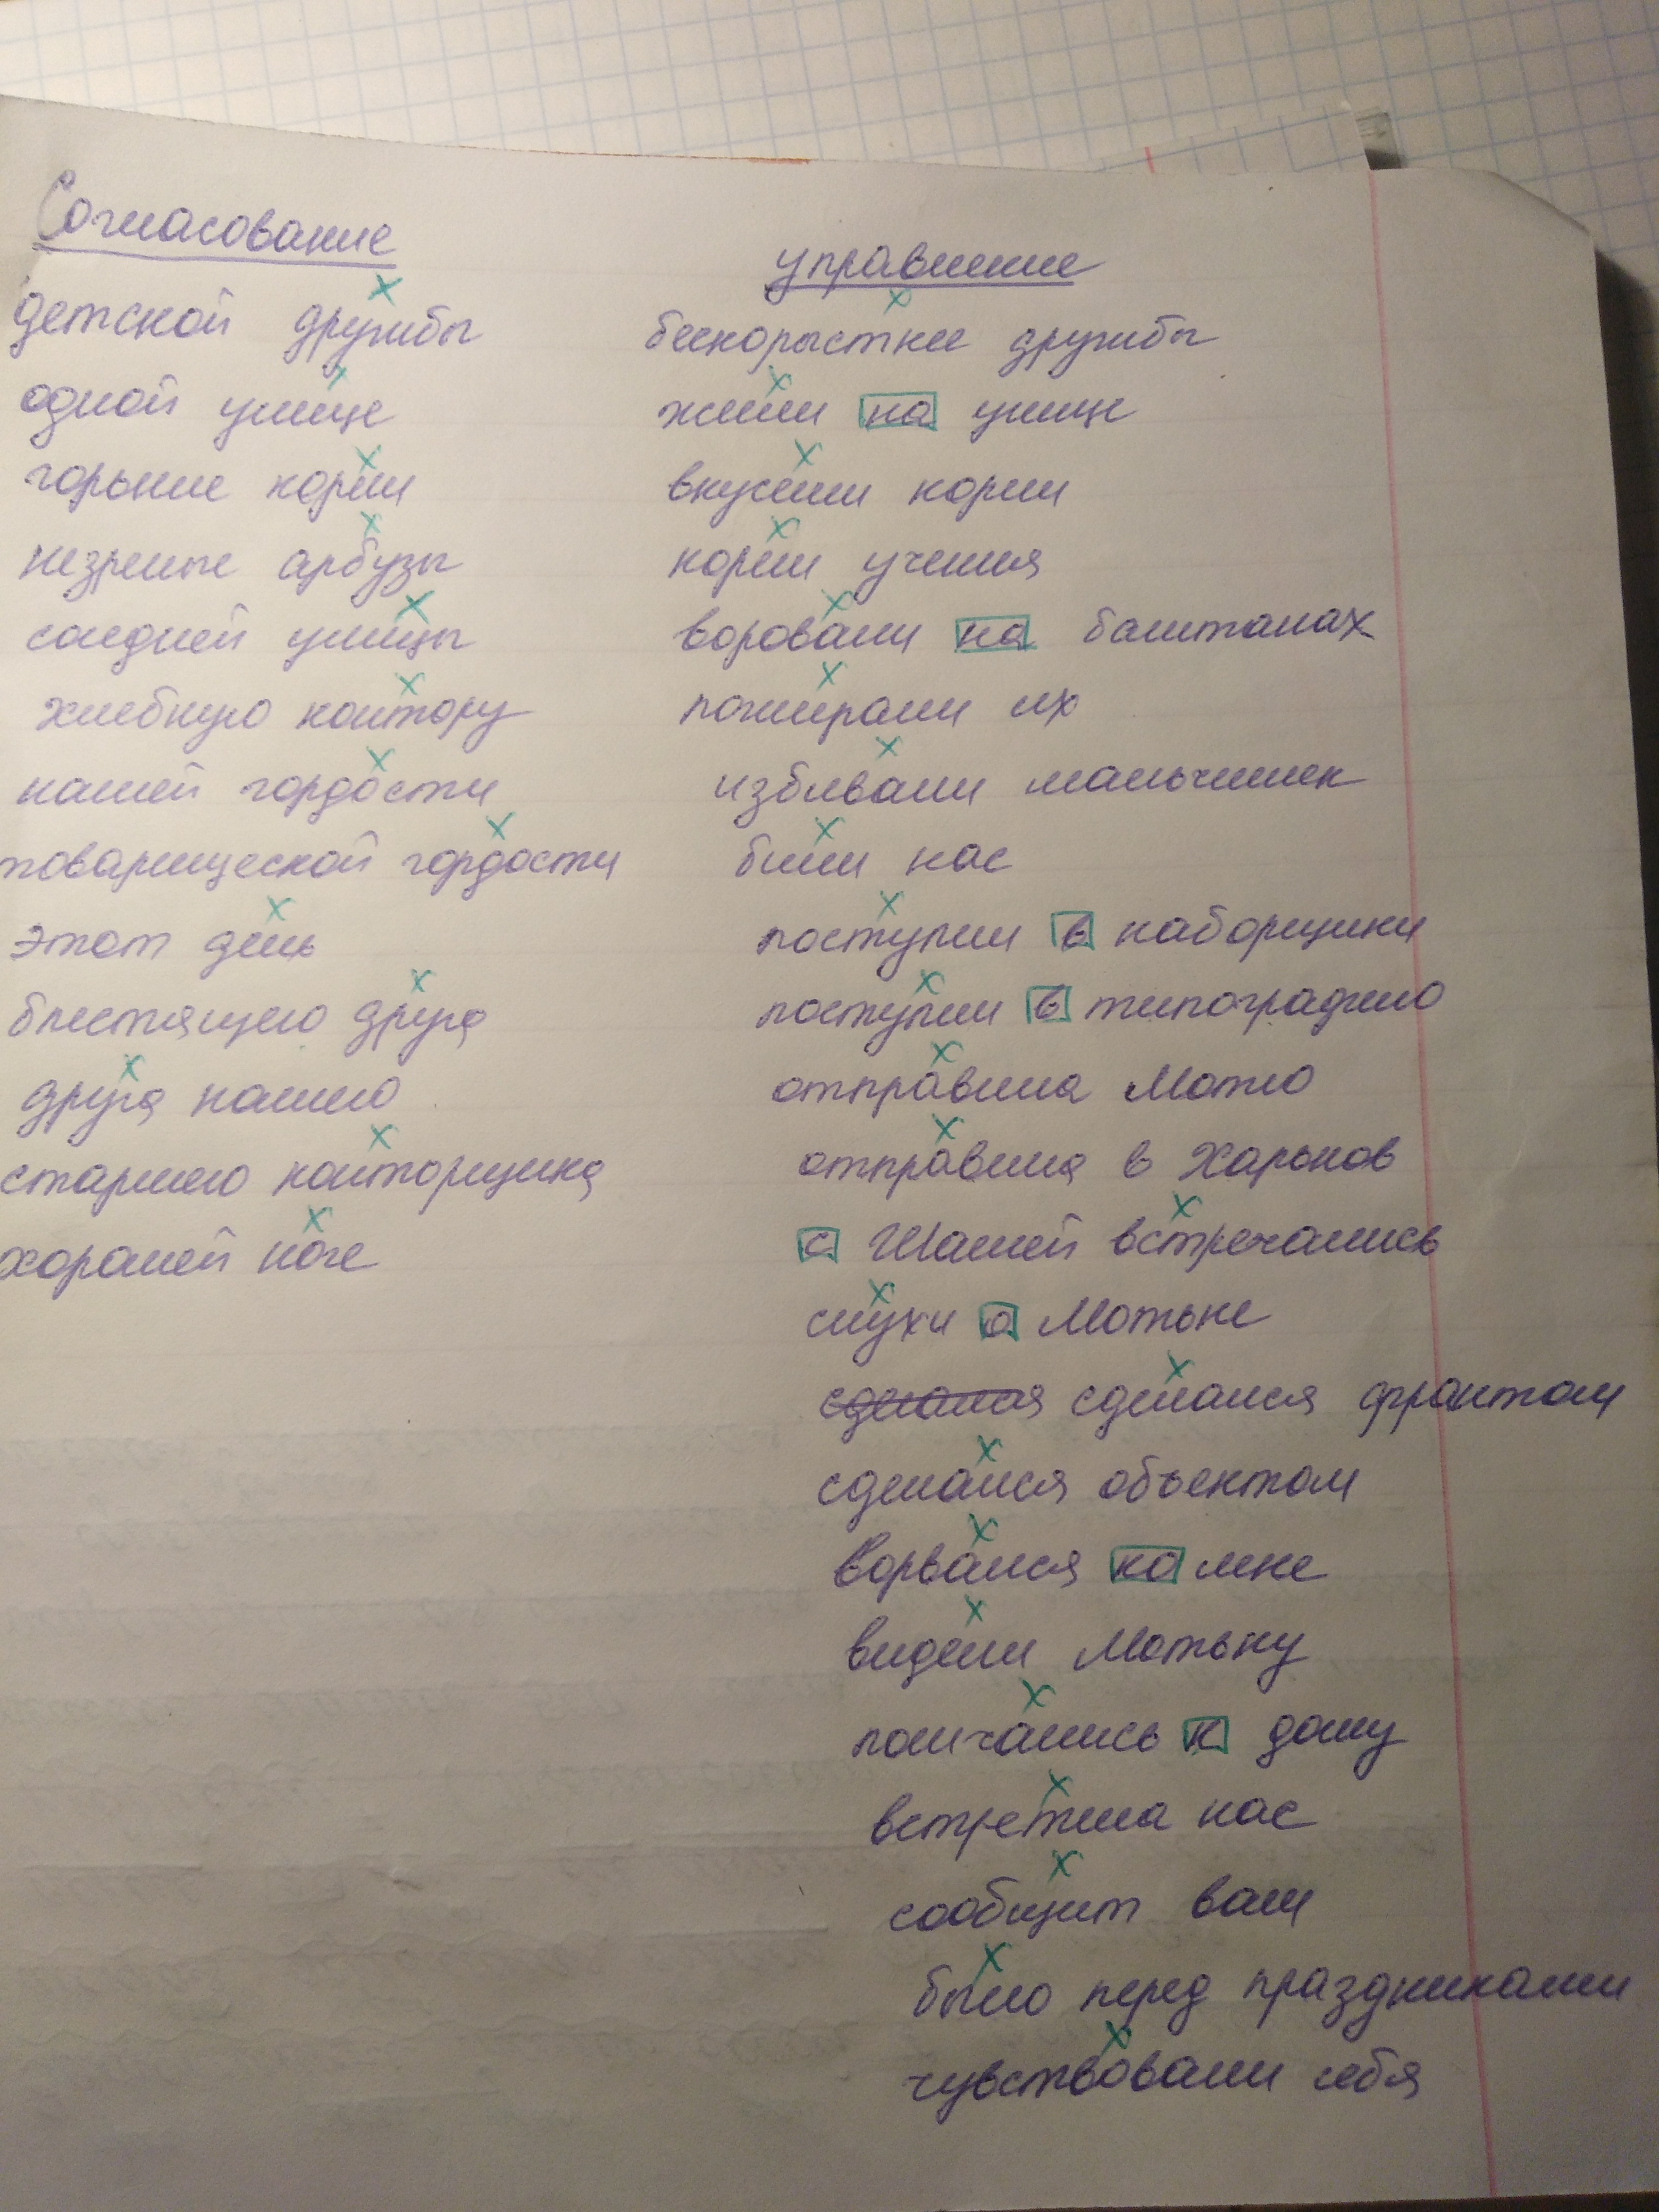 Согласование
детской дружбы
одной улице
горькие корни
незрелые арбузы
соседней улицы
хлебную контору
нашей гордости
товарищеской гордости
этот день
блестящего друга
друга нашего
старшего конторщика
хорошей ноге
управление
бескорыстнее дружбы
жили на улице
вкусили корни
корни учения
воровали на баштанах
пожирали их
избивали мальчишек
били нас
поступили в наборщики
поступили в типографию
отправила Мотю
отправила в Харьков
с Шашей встречались
слухи о Мотьке
сделался сделался франтом
сделался объектом
ворвался ко мне
видели Мотьку
помчались к дому
встретила нас
сообщит вам
было перед праздниками
чувствовали себя